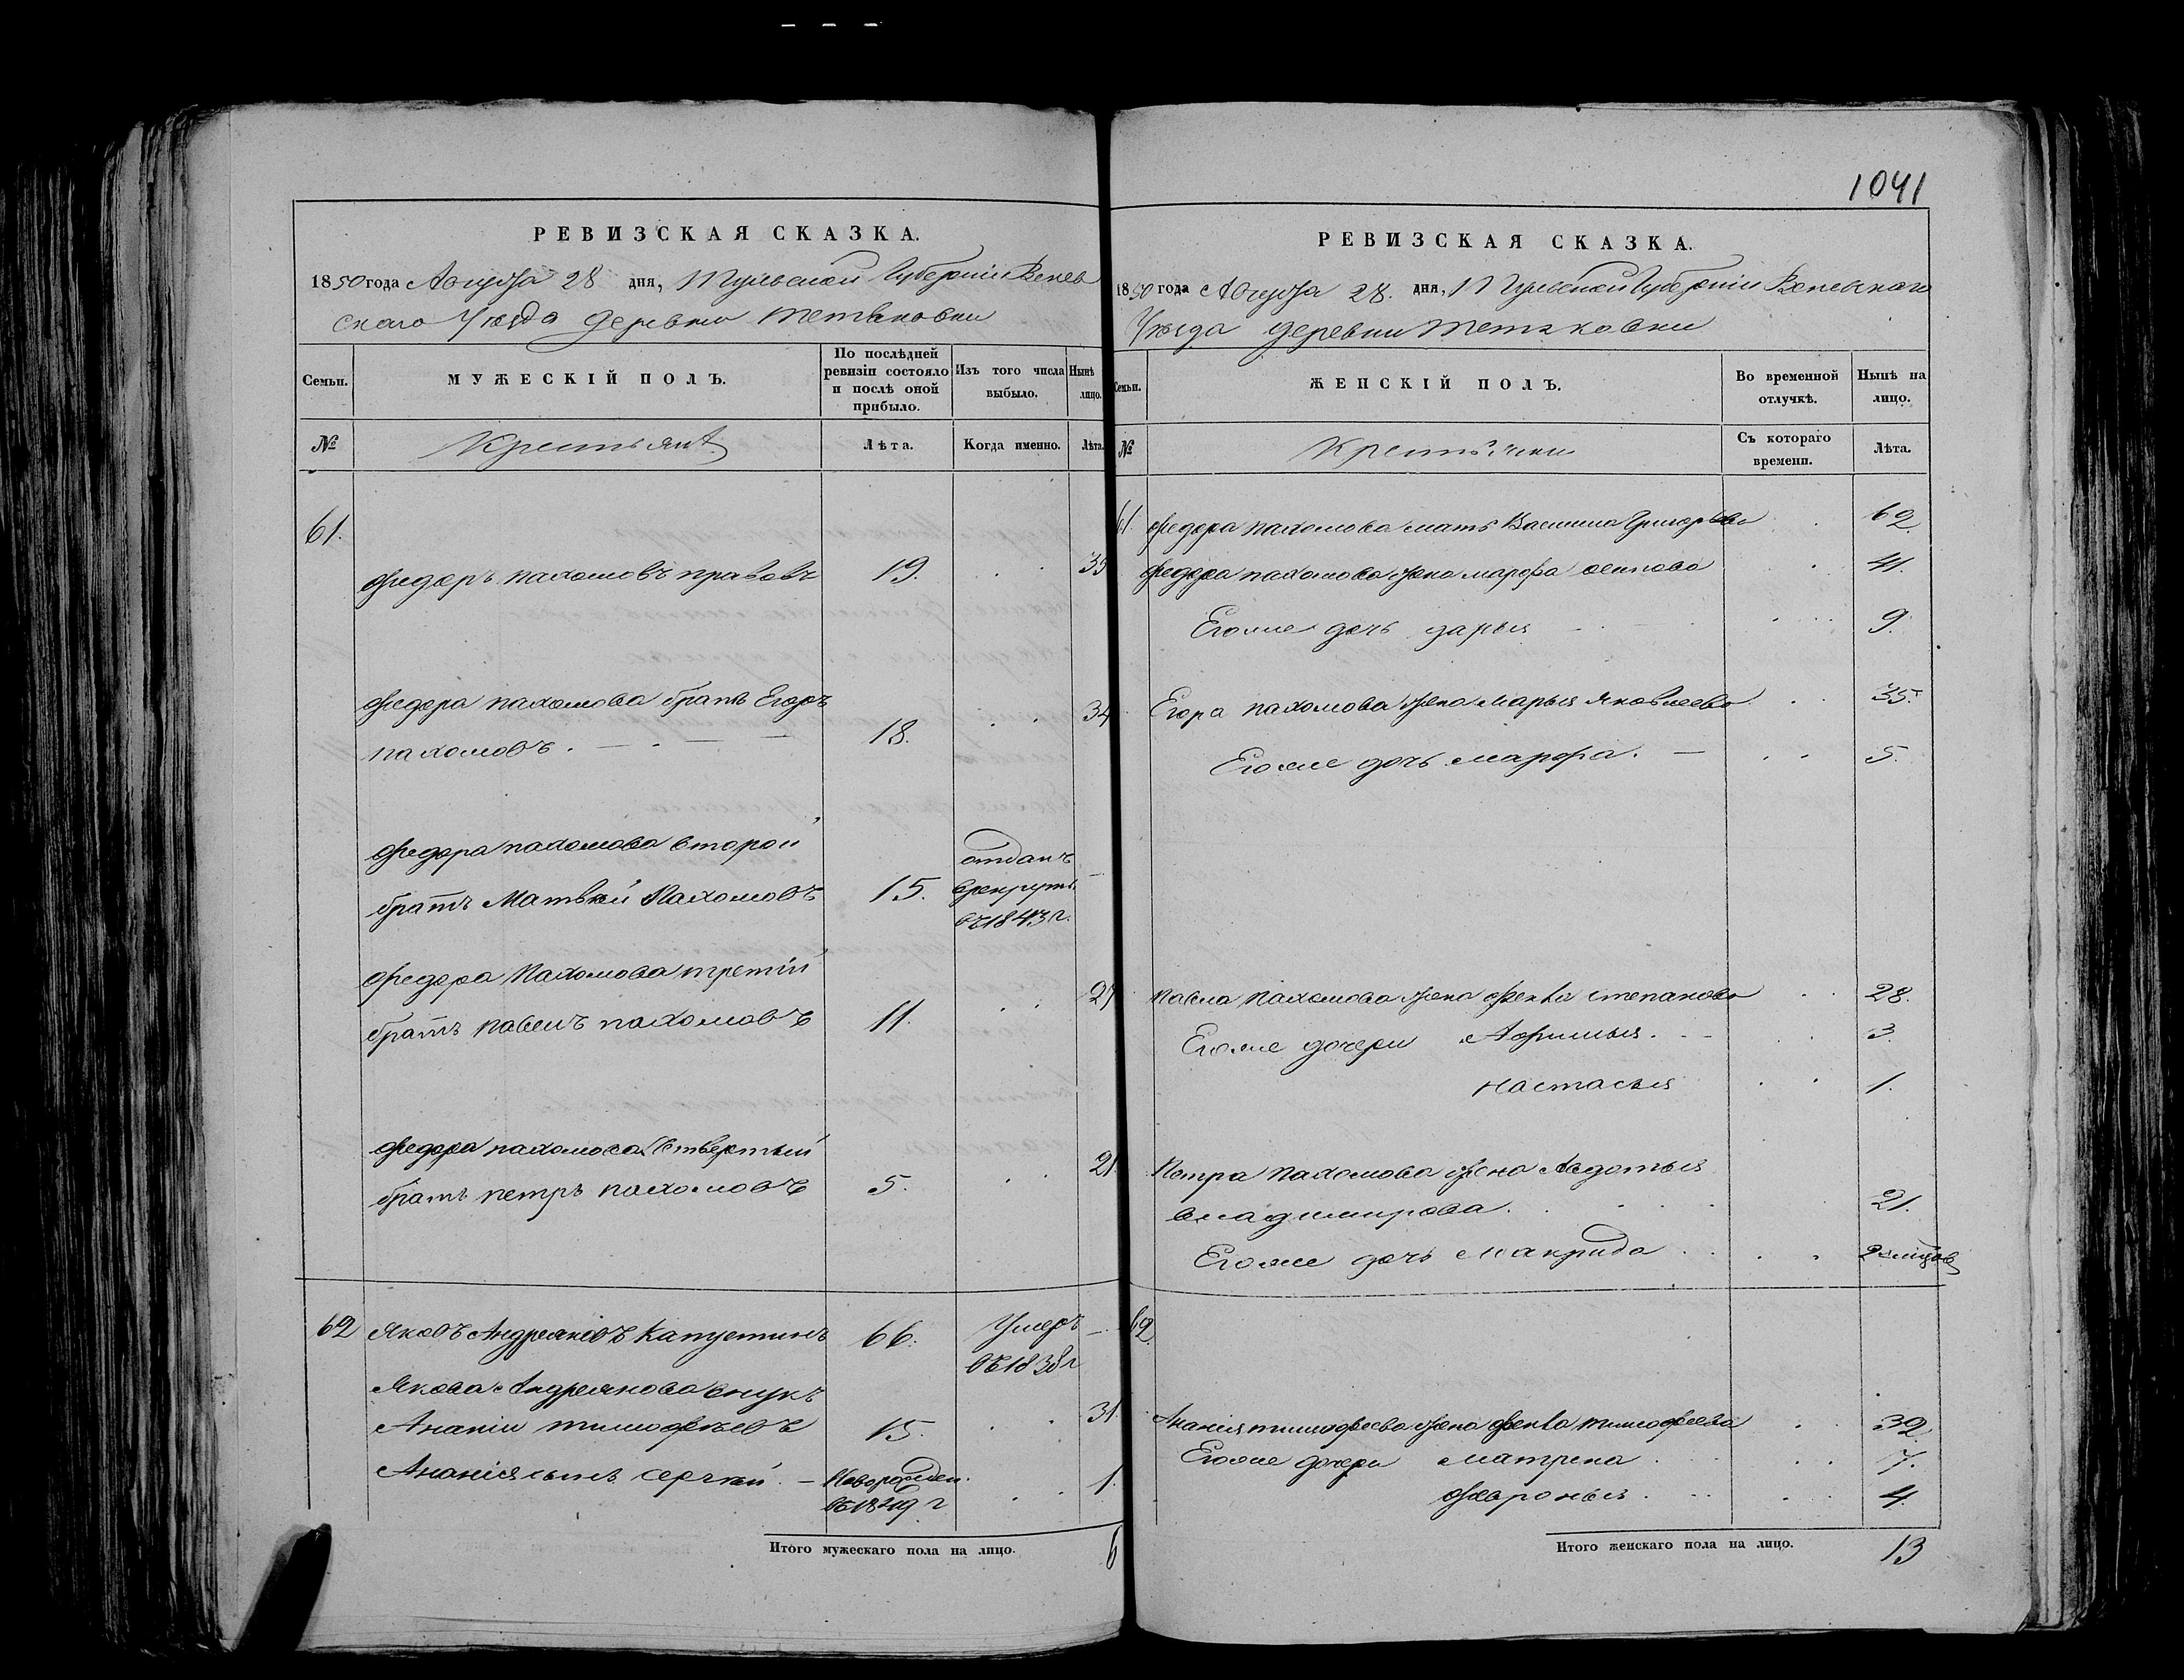 1041
РЕВИЗСКАЯ СКАЗКА.
1850 года Августа 28 дня, Тульской Губернiи Венев
скаго Уѣзда деревни Тетяковки
Семьи.
МУЖЕСКIЙ ПОЛЪ.
По послѣдней ревизiи состояло и послѣ оной прибыло.
Изъ того числа выбыло.
Нынѣ лицо.
№
Крестьянѣ
Лѣта.
Когда именно.
Лѣта.
61.
Федоръ Пахомовъ 19. 35
Федора Пахомова братъ Егоръ
Пахомовъ. 18. 34
Федора Пахомова второй
братъ Матвѣй Пахомовъ 15. отданъ
в рекруты
въ 1843 г.
Федора Пахомова третiй
братъ Павелъ Пахомовъ 11. 27
Федора Пахомова Четвертый
братъ Петръ Пахомовъ 5. 21
62 Яковъ Андреяновъ Капустинъ 66. Умеръ —
въ 1838 г
Якова Андреянова внукъ
Ананiи Тимофѣевъ 15. 31.
Ананiя сынъ Сергѣй. — Новорожден.
въ 1849 г 1.
Итого мужескаго пола на лицо. 6
РЕВИЗСКАЯ СКАЗКА.
1850 года Августа 28. дня, Тульской Губернiи Веневскаго
Уѣзда деревни Тетяковки
Семьи.
ЖЕНСКIЙ ПОЛЪ.
Во временной отлучкѣ.
Нынѣ на лицо.
№
Крестьянки
Съ котораго времени.
Лѣта.
61. Федора Пахомова мать Василиса Григорьева 62
Федора Пахомова жена Марфа Осипова 41.
Егоже дочь Дарья 9.
Егора Пахомова жена Марья Яковлева 35.
Егоже дочь Марфа. — 5.
Павла Пахомова жена Фекла Степанова 28.
Егоже дочери Афимья. 3.
Настасья 1.
Петра Пахомова жена Авдотья
Владимирова. 21.
Егоже дочь Макрида 2 мѣсяцов
62.
Ананiя Тимофеева жена Фекла Тимофеева 32
Егоже дочери Матрена 7.
Февронья. 4.
Итого женскаго пола на лицо. 13